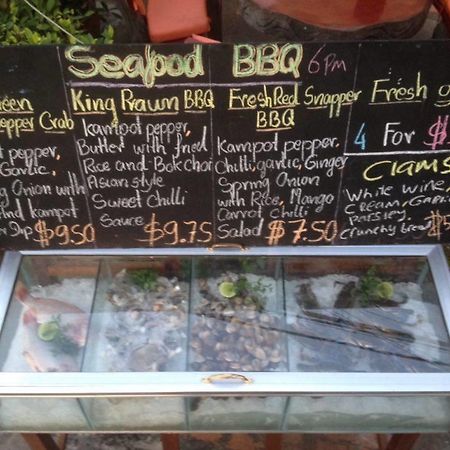 Seafood BBQ 6pm
een
epper Crab
pepper,
Garlic,
ng Onion with
and kampot
er Dip $9.50
King Prawn BBQ
kampot pepper,
Butter with fried
Rice and Bok choi
Asian style
Sweet Chilli
Sauce $9.75
Fresh Red Snapper
BBQ
Kampot pepper,
Chilli, garlic, Ginger
Spring Onion
with Rice, Mango
Carrot Chilli
Salad $7.50
Fresh
4 For $
Clams
White wine,
Cream, Garlic
parsley,
Crunchy bread $5